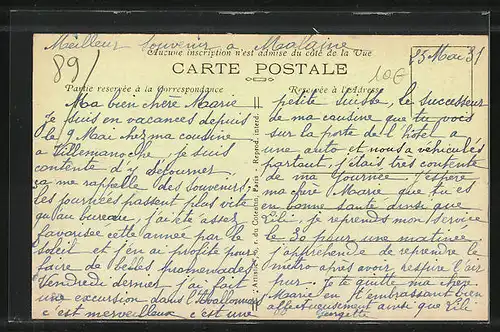 Meilleur Souvenir à Malaine
Aucune inscription n'est admise du côté de la Vue
89/
25 Mai 31
CARTE POSTALE
10€
Partie reservée à la Correspondance
Reservée à l'Adresse
Ma bien chère Marie
Je suis en vacances depuis
le 9 Mai chez ma cousine
à Villemanoche, je suis
contente d'y séjourner,
ça me rappelle des souvenirs,
les journées passent plus vite
qu'au bureau, j'ai été assez
favorisée cette année par le
soleil et j'en ai profité pour
faire de belles promenades,
Vendredi dernier j'ai fait
une excursion dans l'Avallonnais
c'est merveilleux c'est une
petite Suisse, le successeur
de ma cousine que tu vois
sur la porte de l'hôtel a
une auto et nous a véhiculés
partout, j'étais très contente
de ma journée. J'espère
ma chère Marie que tu es
en bonne santé ainsi que
Lili, je reprends mon service
le 30 pour une matinée
j'appréhende de reprendre le
métro après avoir respiré l'air
pur. Je te quitte ma chère
Marie en t'embrassant bien
affectueusement ainsi que Lili
Georgette
r. du Cotentin, Paris - Reprod. interd.